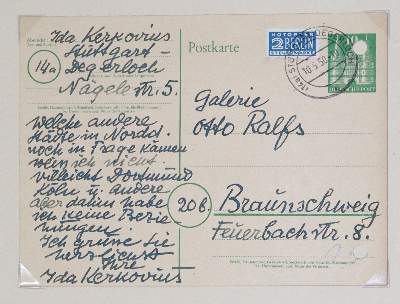 Ida Kerkovius
Stuttgart-
Degerloch
14a
Nägele str. 5.
welche andere
Städte in Nordd.
noch in Frage kämen
weiss ich nicht.
vielleicht Dortmund
Köln u. andere
aber dahin habe
ich keine Bezie-
hungen.
Ich grüsse Sie
herzlichst
Ihre
Ida Kerkovius
Postkarte
NOTOPFER
2 BERLIN
STEUERMARKE
DEUTSCHE POST
Galerie
Otto Ralfs
20b. Braunschweig
Feuerbachstr. 8.